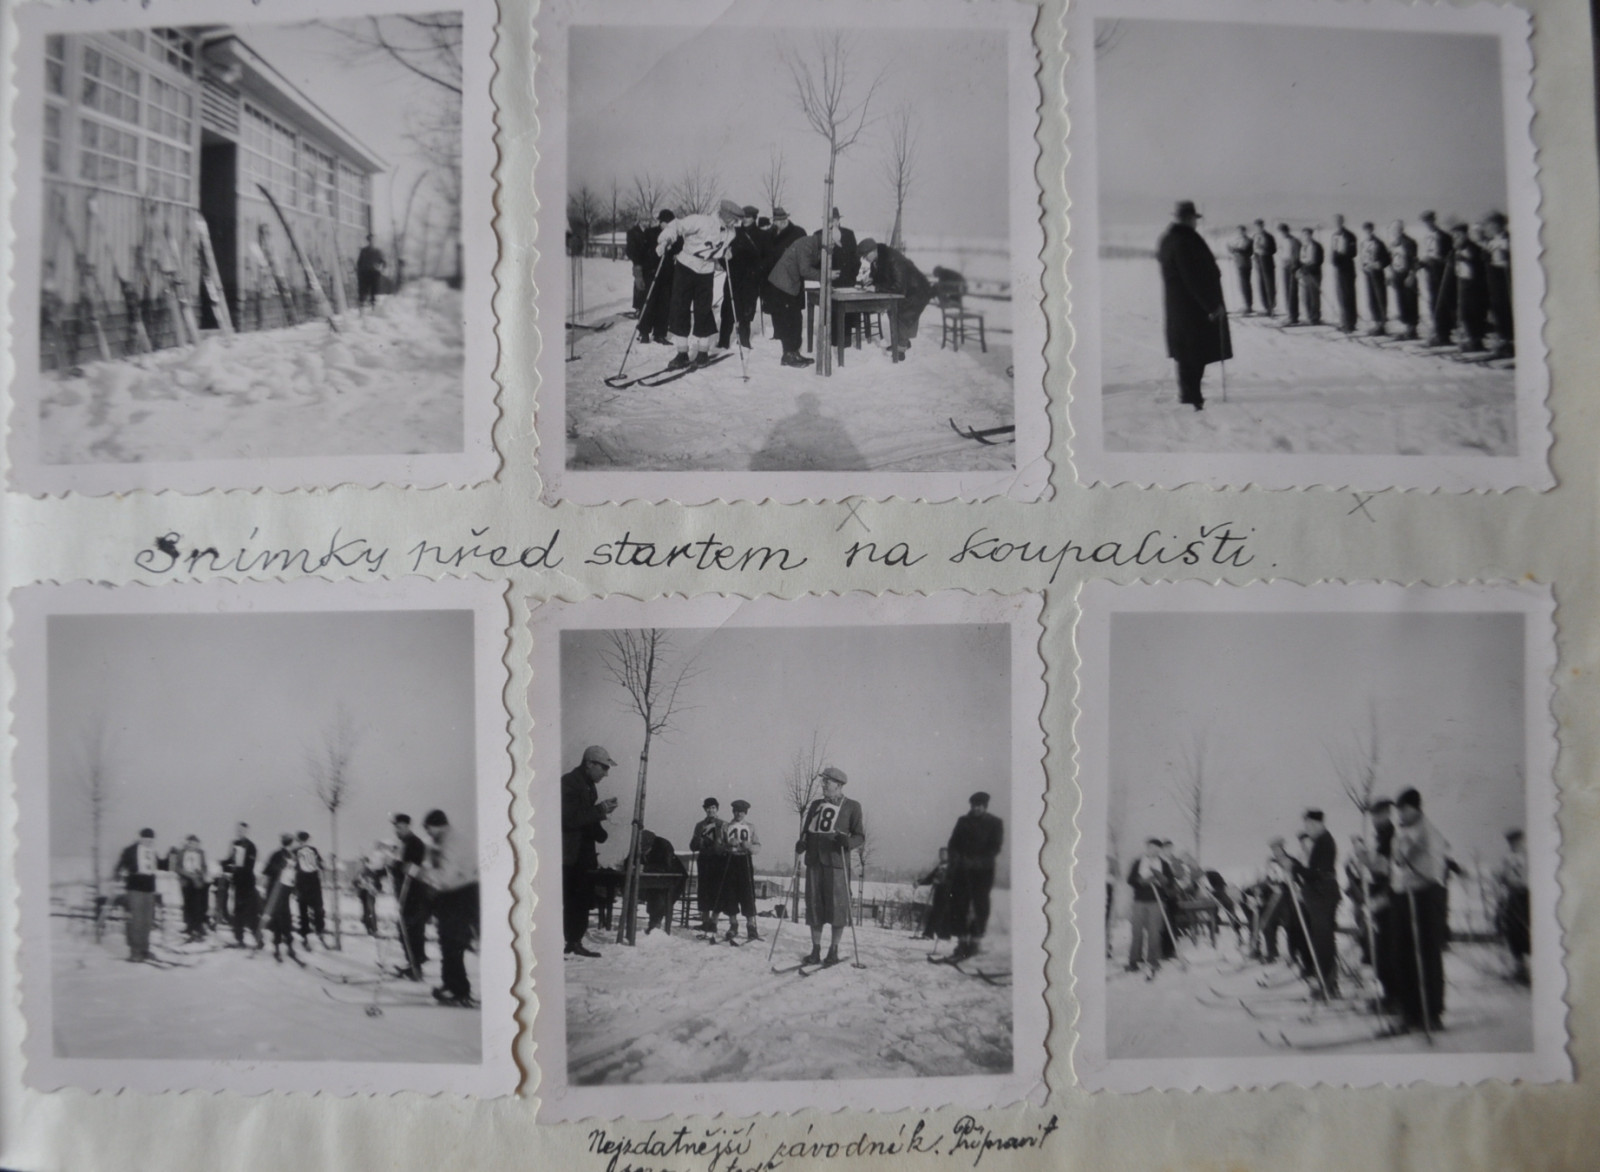 x x
Snímky před startem na koupališti.
18
Nejzdatnější závodník. Připravit